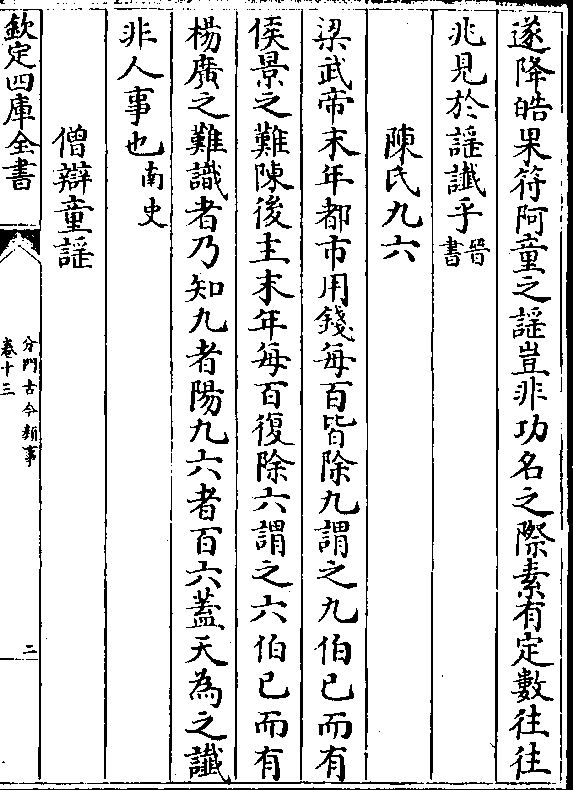 遂降皓果符阿童之謡豈非功名之際素有定數往往
兆見於謡讖乎晉書
陳氏九六
梁武帝末年都市用錢每百皆除九謂之九伯已而有
侯景之難陳後主末年每百復除六謂之六伯已而有
楊廣之難識者乃知九者陽九六者百六蓋天為之讖
非人事也南史
僧辯童謡
欽定四庫全書
分門古今類事
卷十三
二